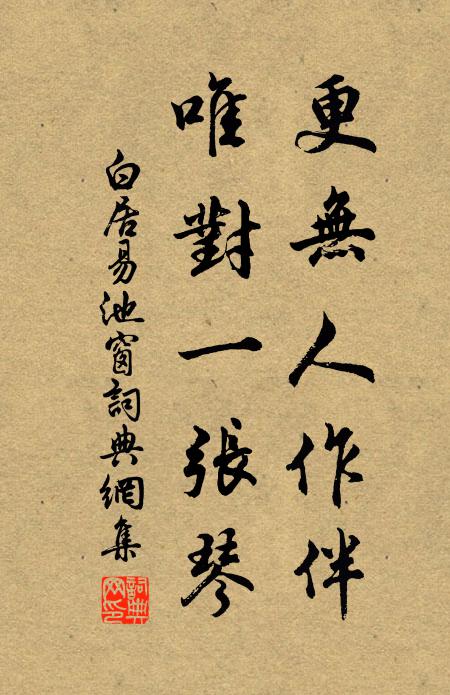 更無人作伴
唯對一張琴
白居易池窗詞典網集
詞典网印